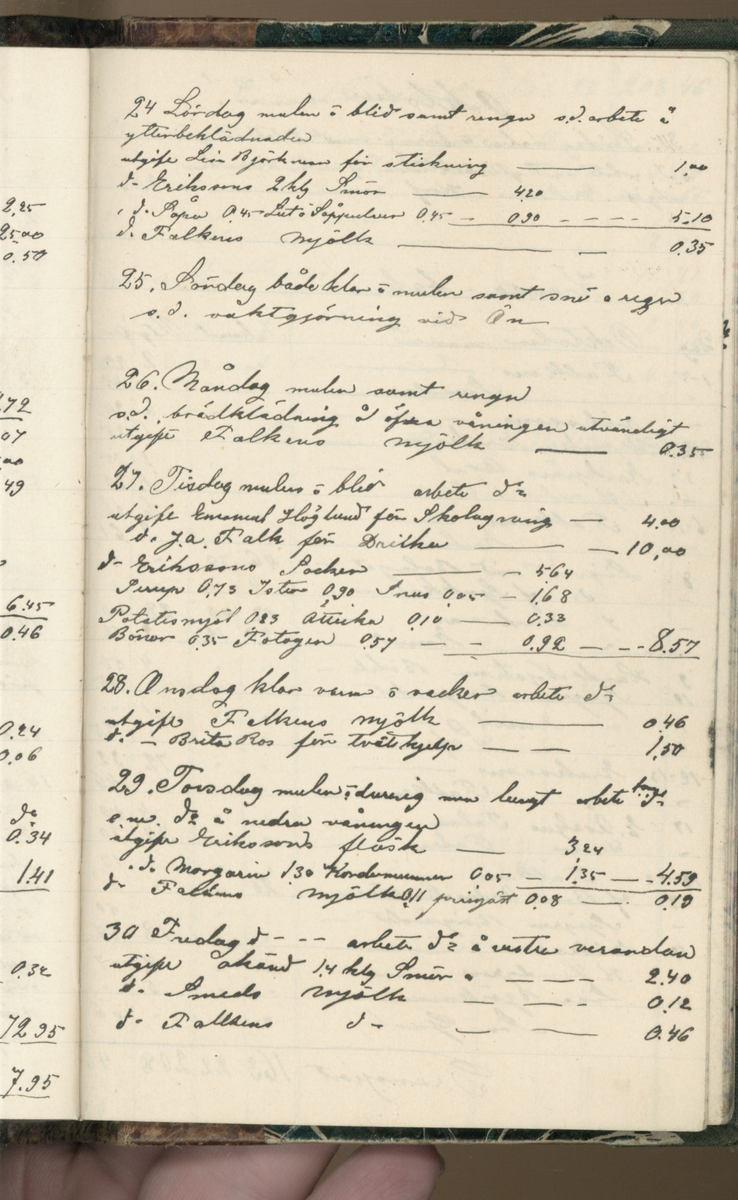 2.25
25.00
0.50
72
07
49
6.45
0.46
0.24
0.06
do
0.34
1.41
0.34
72.95
7.95
24 Lördag mulen o blid samt rengn s.d. arbete å
ytterbeklädnaden
utgift Lisa Björkman för stickning — 1,00
d- Erikssons 2 klg Smör — 4.20
d. Såpa 0.45 Lut o Såppulver 0.45 — 0.90 - - - - 5.10
d. Falkens mjölk — 0.35
25. Söndag både klar o mulen samt snö o regn
s.d. vaktgjörning vid Ön
26. Måndag mulen samt rengn
s.d. brädklädning å öfra våningen utvändigt
utgift Falkens mjölk — 0.35
27. Tisdag mulen o blid arbete do
utgift Emanuel Höglund för — 4.00
d. J.A. Falk för — 10,00
d- Erikssons Socker — 5.64
Sirup 0.73 Ister 0.90 Snus 0.05 - 1.68
Potatismjöl 0.23 Ätticka 0.10 — 0.33
Bönor 0.35 Fotogen 0.57 — - 0.92 - - - 8.57
28. Onsdag klar varm o vacker arbete do
utgift Falkens mjölk — 0.46
d. - Brita Ros för tvätthjelp — 1,50
29. Torsdag mulen o men lungt arbete do
e.m. do å nedra våningen
utgift Erikssons fläsk — 3.24
d. Margarin 1.30 0.05 — 1.35 — 4.59
d- Falkens mjölk 0.11 0.08 — 0.19
30 Fredag d - - - arbete do å vestra verandan
utgift 1.4 klg Smör - — — 2.40
d. Smeds mjölk - — — 0.12
d- Falkens d- — — 0.46